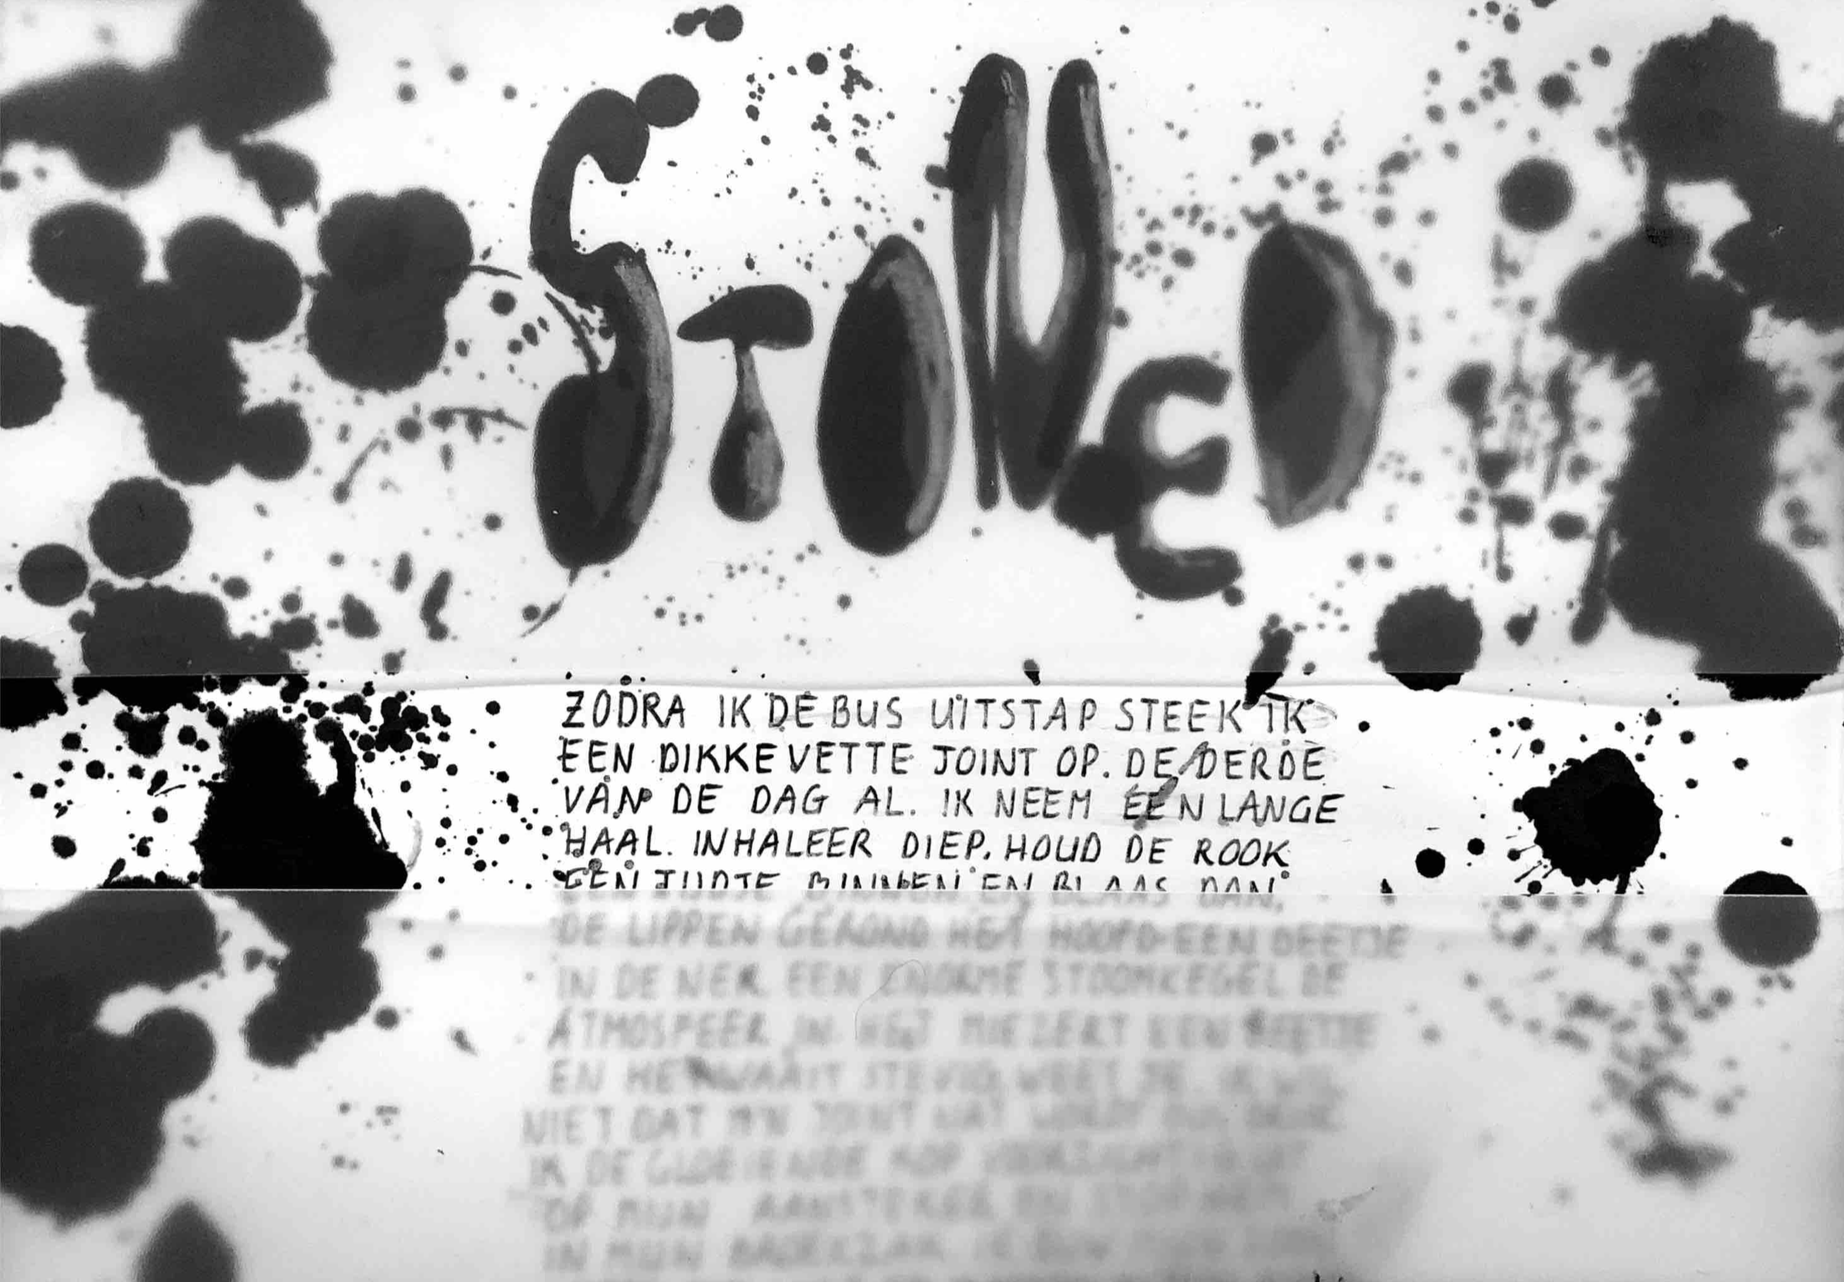 STONED
ZODRA IK DE BUS UITSTAP STEEK IK
EEN DIKKE VETTE JOINT OP. DE DERDE
VAN DE DAG AL. IK NEEM EEN LANGE
HAAL. INHALEER DIEP. HOUD DE ROOK
EEN TIJDJE BINNEN EN BLAAS DAN,
DE LIPPEN GEROND HET HOOFD EEN BEETJE
IN DE NEK EEN ENORME STOOMKEGEL DE
ATMOSFEER IN HET MIEZERT EEN BEETJE
EN HET WAAIT STEVIG WEET JE. IK WIL
NIET DAT M'N JOINT NAT WORDT DUS
IK DE GLOEIENDE KOP
OP MIJN AANSTEKER EN
IN MIJN BROEKZAK